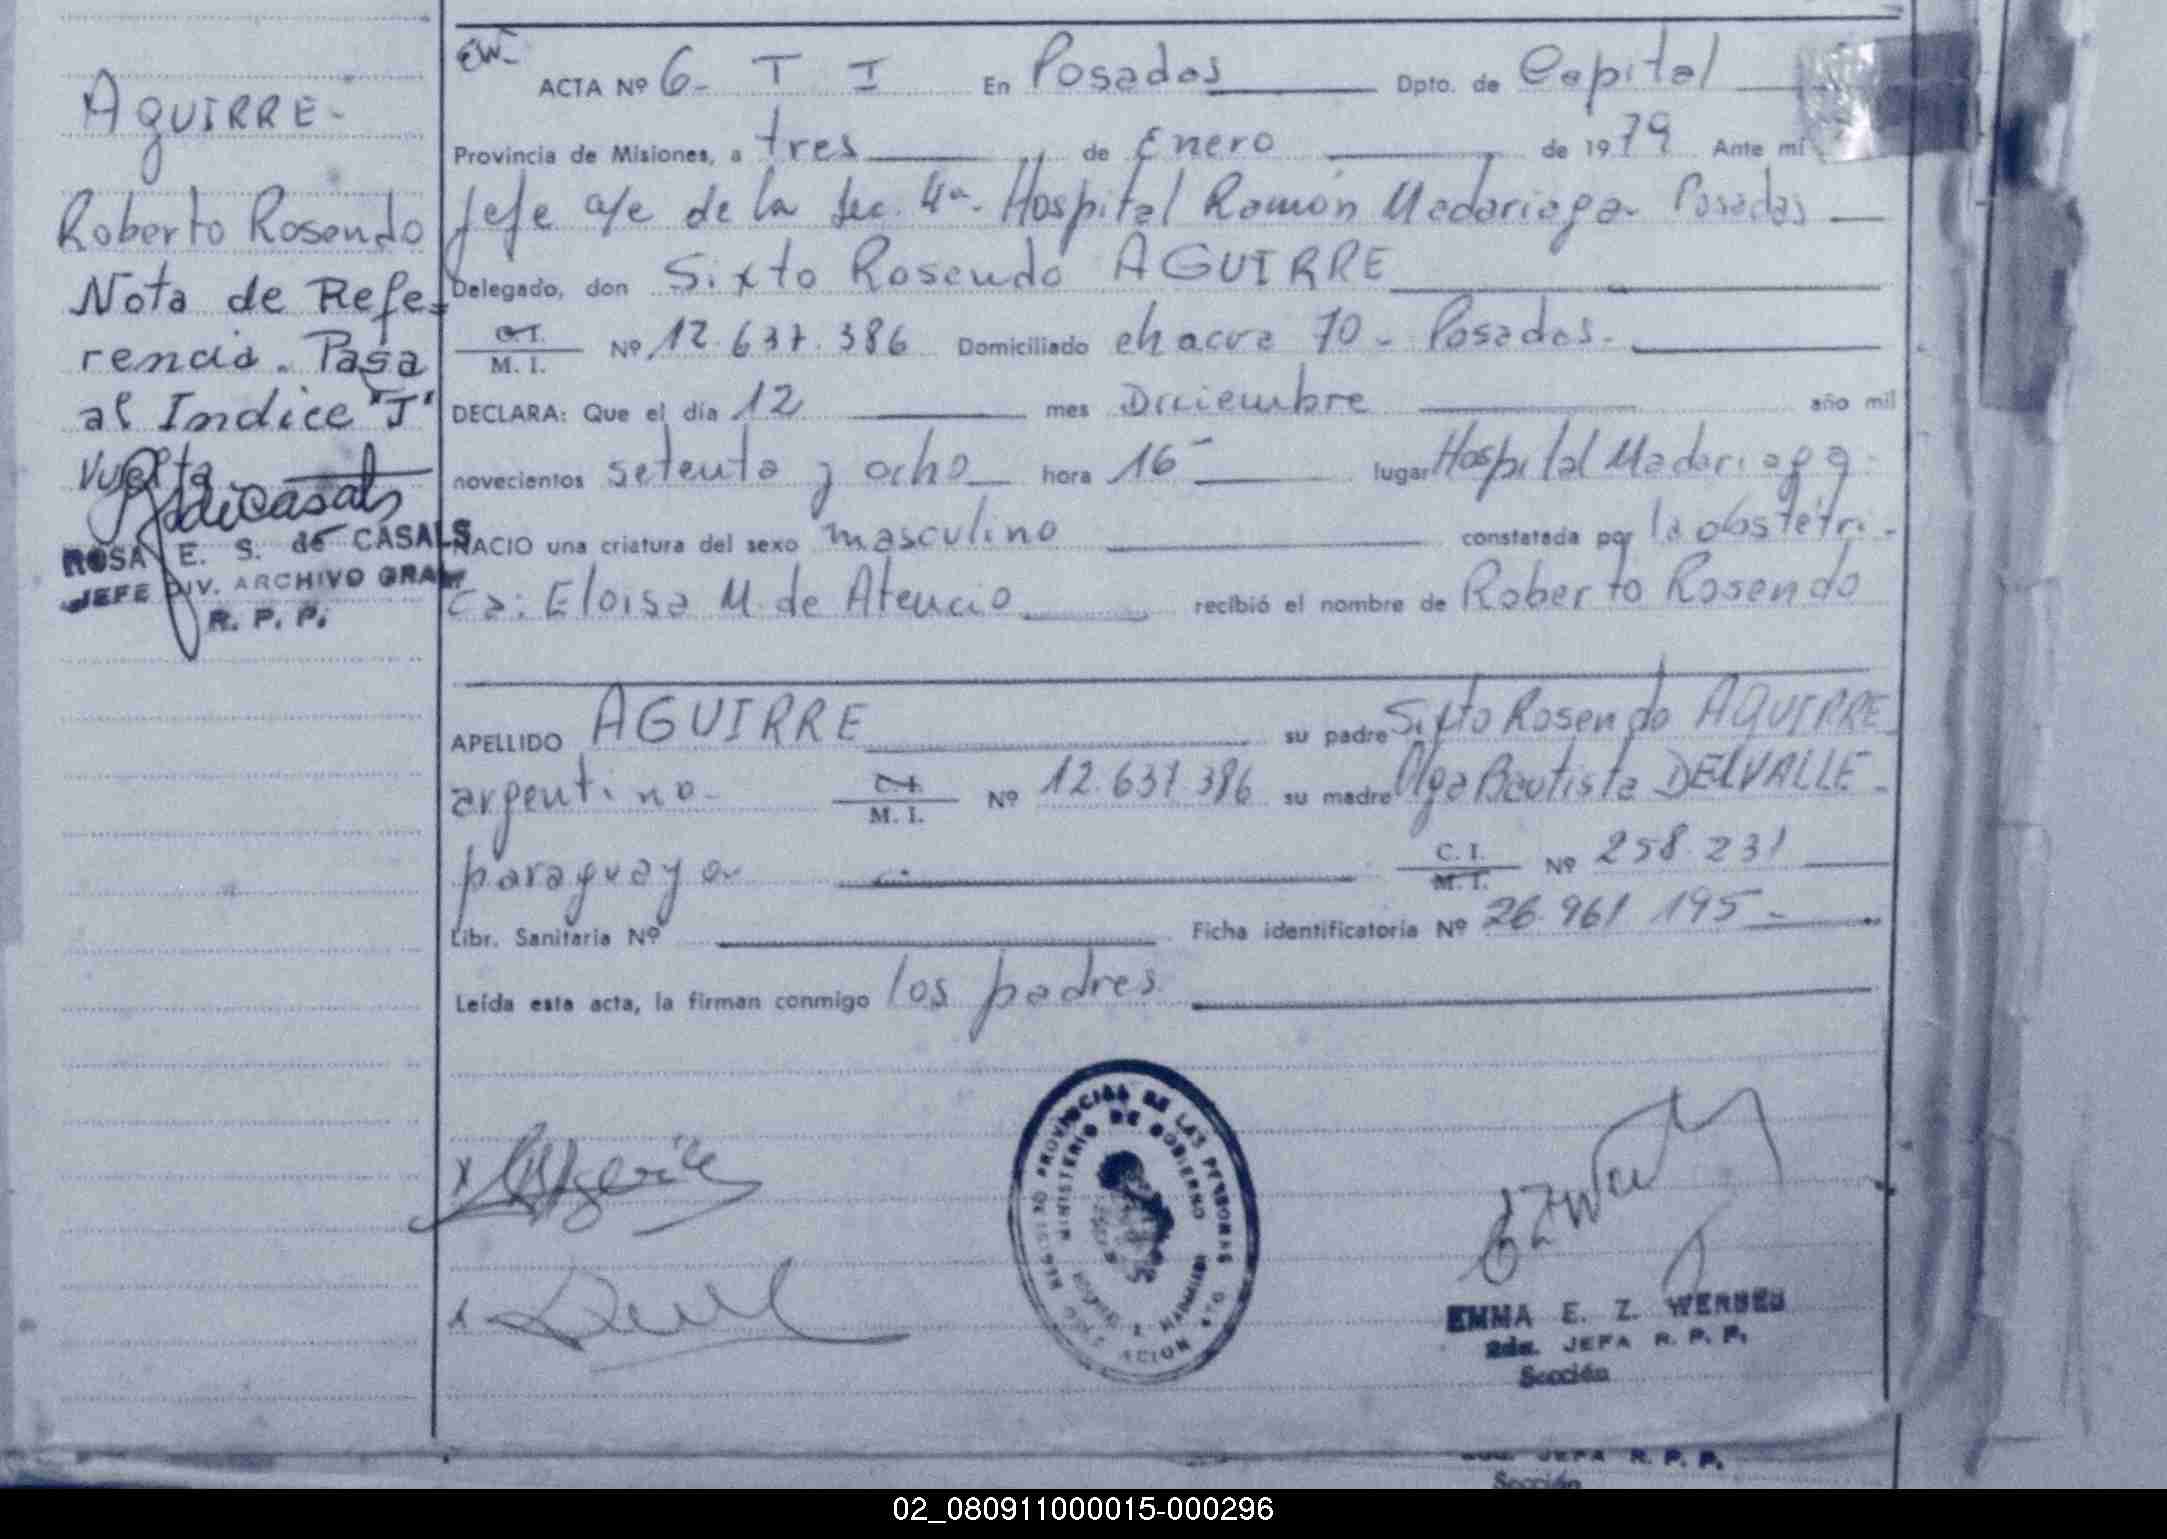 AGUIRRE-
Roberto Rosendo
Nota de Refe=
rencia. Pasa
al Indice "J"
Vuelta
ROSA E. S. de CASALS
JEFE DIV. ARCHIVO GRAL
R. P. P.
EW-
ACTA Nº 6- T I En Posadas Dpto. de Capital
Provincia de Misiones, a tres de Enero de 1979 Ante mí
Jefe a/c de la Sec. 4ª- Hospital Ramón Madariaga- Posadas
Delegado, don Sixto Rosendo AGUIRRE
C.I. M. I. Nº 12.637.386 Domiciliado chacra 70- Posadas-
DECLARA: Que el día 12 mes Diciembre año mil
novecientos setenta y ocho hora 16- lugar Hospital Madariaga-
NACIO una criatura del sexo masculino constatada por la obstétri-
ca: Eloisa M. de Atencio recibió el nombre de Roberto Rosendo
APELLIDO AGUIRRE su padre Sixto Rosendo AGUIRRE
argentino- C.I. M. I. Nº 12.637.386 su madre Olga Bautista DELVALLE-
paraguaya C. I. M. I. Nº 258.231
Libr. Sanitaria Nº Ficha identificatoria Nº 26.961.195-
Leída esta acta, la firman conmigo los padres
REGISTRO PROVINCIAL DE LAS PERSONAS
MINISTERIO DE GOBIERNO
EMMA E. Z. WERNER
2da. JEFA R. P. P.
Sección
2da. JEFA R. P. P.
Sección
02_080911000015-000296